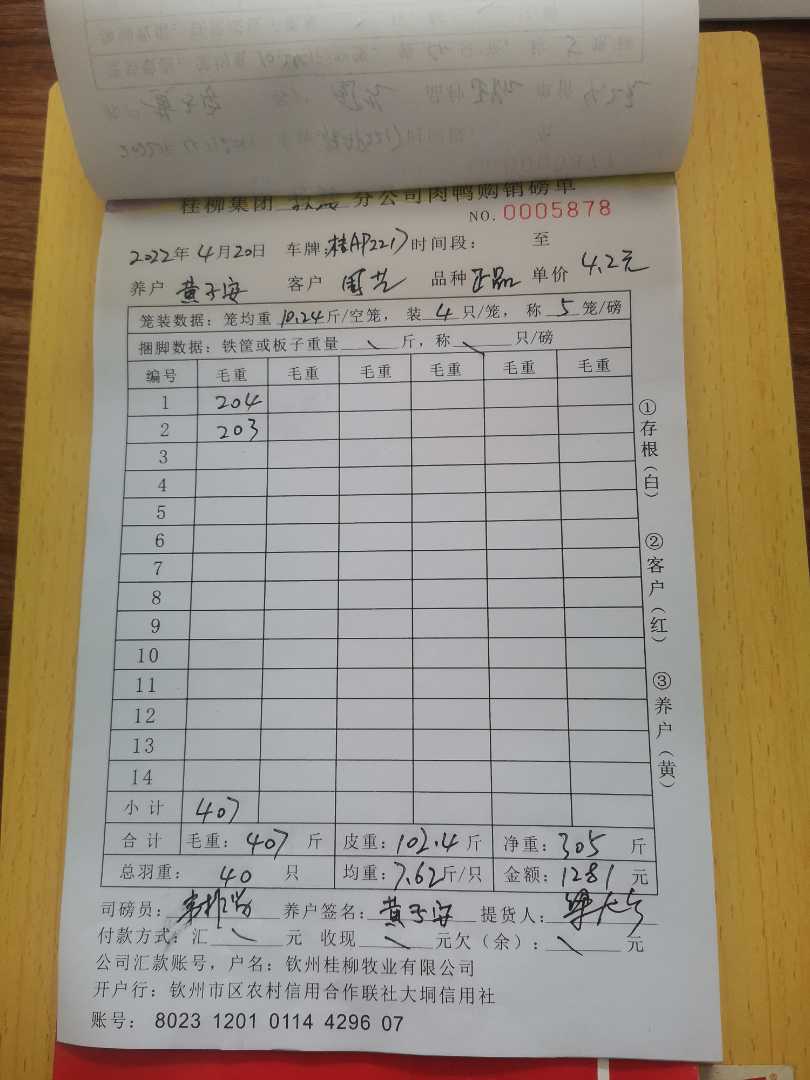 桂柳集团 分公司肉鸭购销磅单
NO. 0005878
2022年4月20日 车牌:桂AP2217 时间段: 至
养户 黄子安 客户 周艺 品种 正品 单价 4.2元
笼装数据:笼均重 10.24 斤/空笼, 装 4 只/笼, 称 5 笼/磅
捆脚数据:铁筐或板子重量 \ 斤,称 \ 只/磅
编号 毛重 毛重 毛重 毛重 毛重 毛重
1 204
2 203
3
4
5
6
7
8
9
10
11
12
13
14
小计 407
合计 毛重: 407 斤 皮重: 102.4 斤 净重: 305 斤
总羽重: 40 只 均重: 7.62 斤/只 金额: 1281 元
司磅员: 养户签名: 黄子安 提货人:
付款方式:汇 \ 元 收现 \ 元欠(余): \ 元
公司汇款账号,户名:钦州桂柳牧业有限公司
开户行:钦州市区农村信用合作联社大垌信用社
账号: 8023 1201 0114 4296 07
①存根(白)
②客户(红)
③养户(黄)